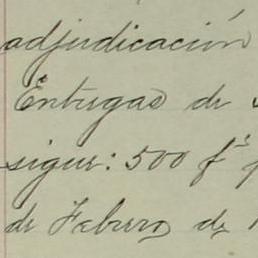 adjudicación
Entregas de
sigue: 500 fs
de Febrero de